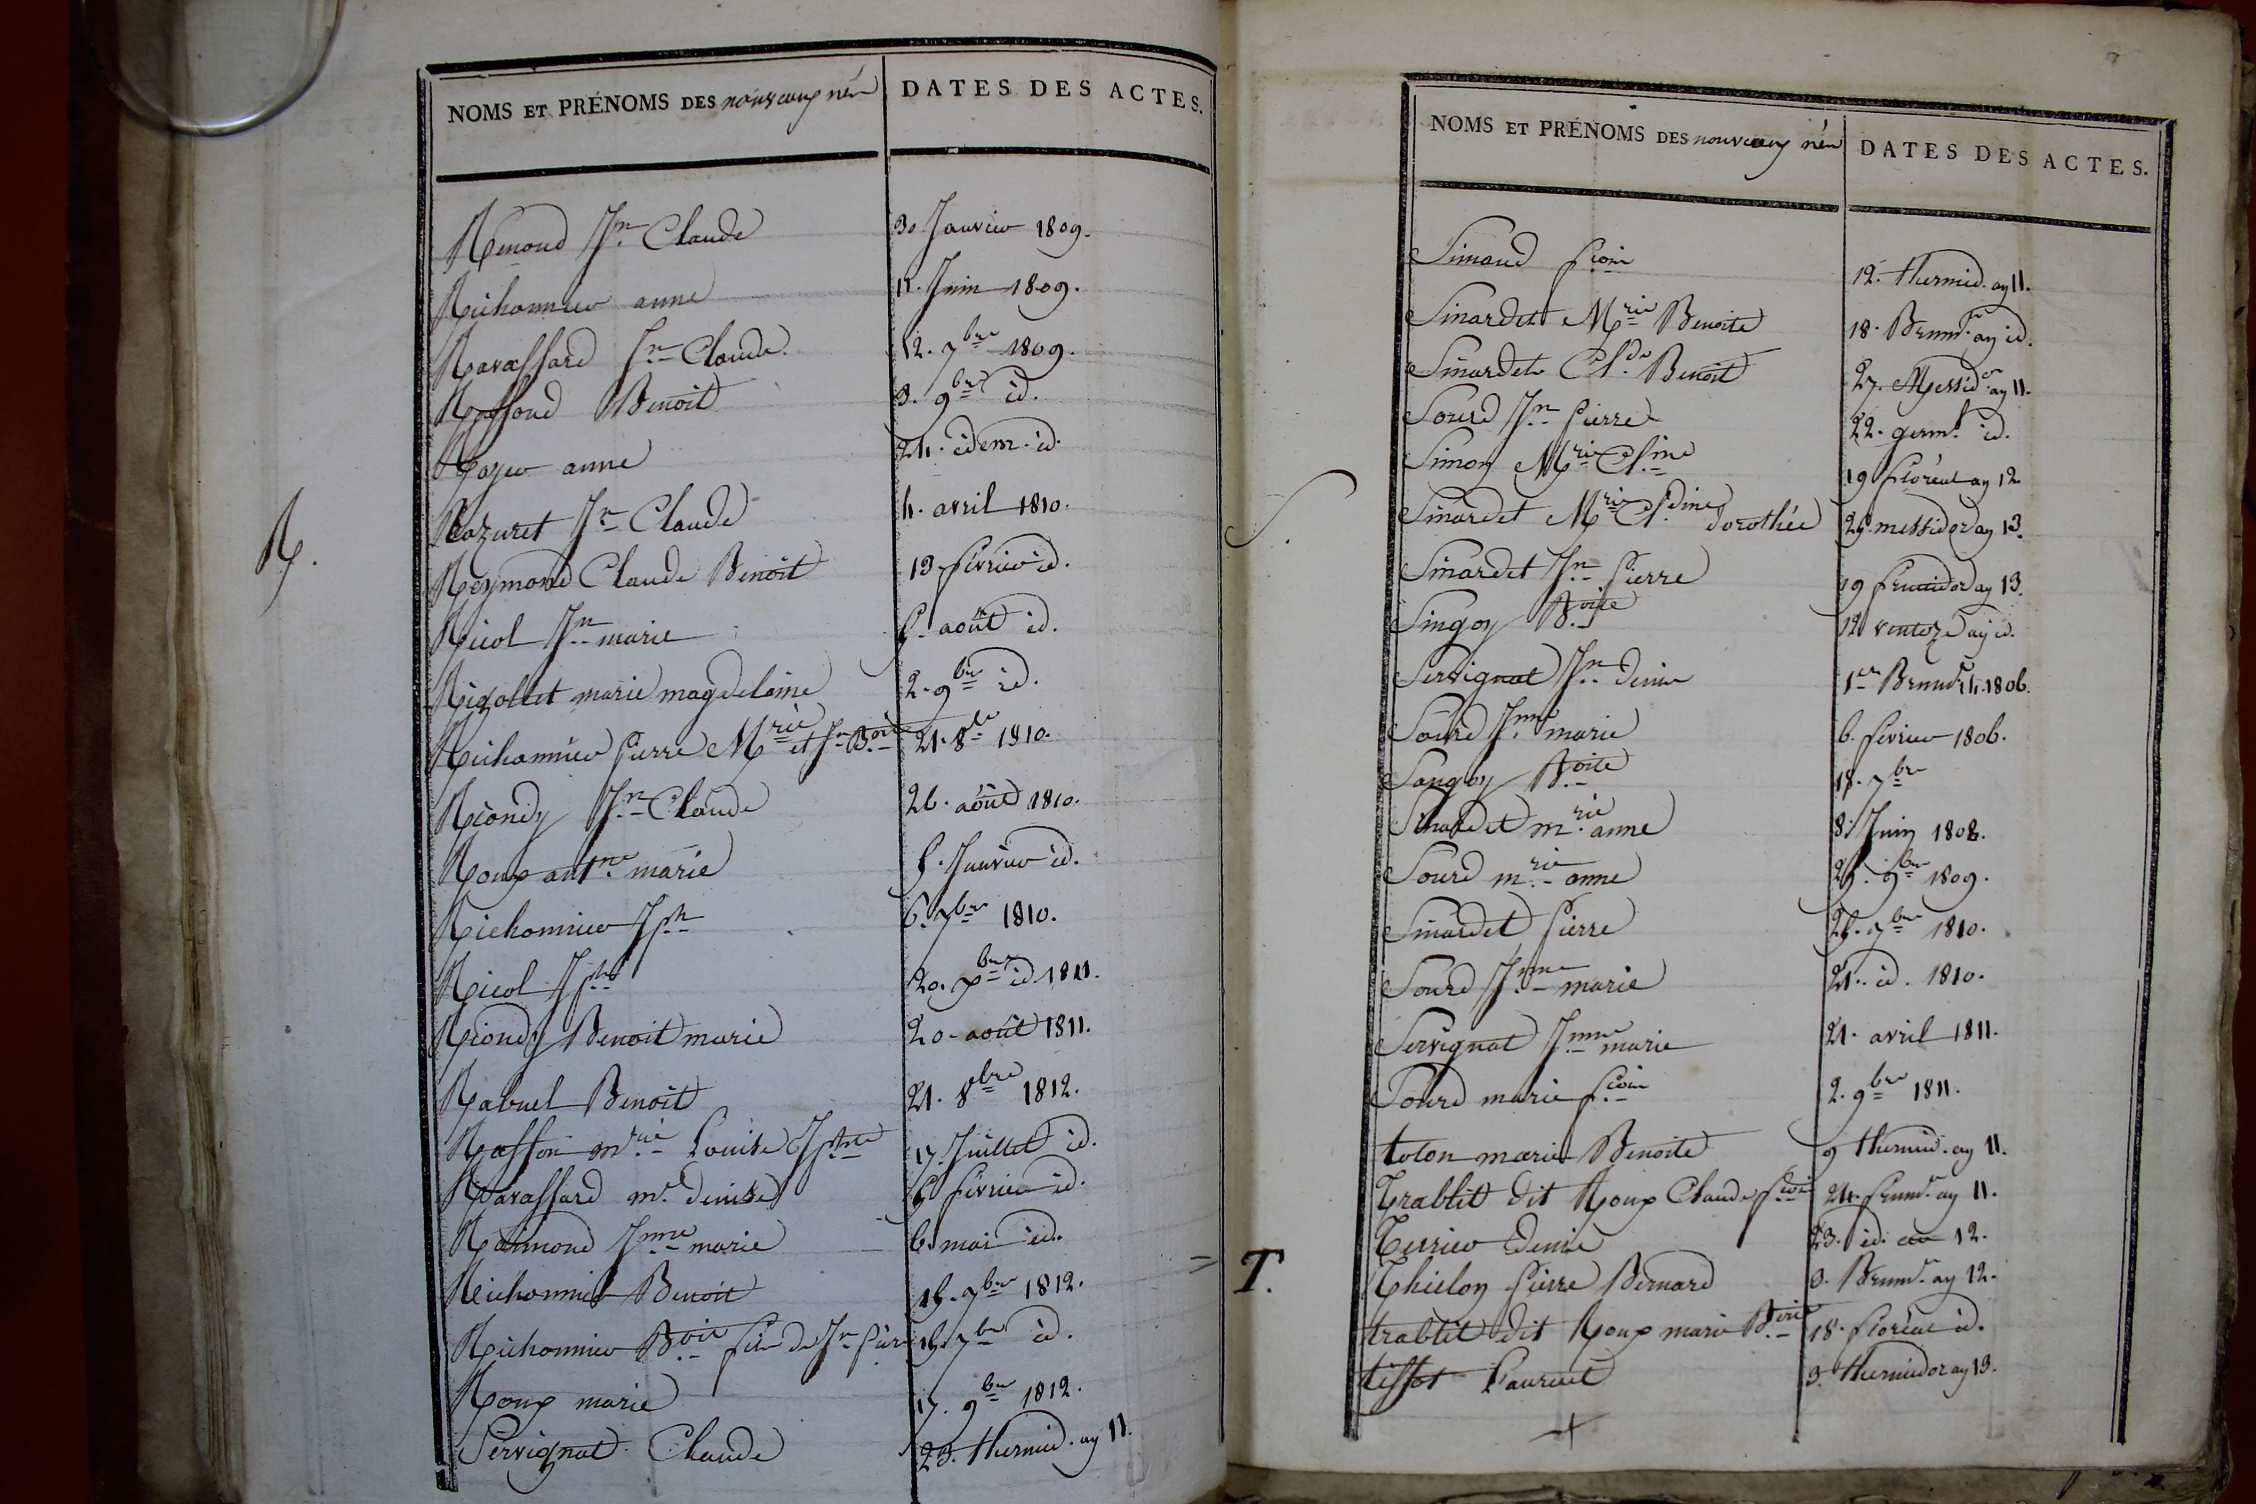 NOMS ET PRÉNOMS DES nouveaux nés DATES DES ACTES.
Rémond Jn Claude 30. Janvier 1809.
Richonnier anne 12. Juin 1809.
Ravassard Jn Claude. 12. 7bre 1809.
Raffoud Benoit 3. 9bre id.
Royer anne 24. idem. id.
Razuret Jn Claude 4. avril 1810.
R.
Reymond Claude Benoit 13 février id.
Ricol Jn marie août id.
Rigollet marie magdelaine 2. 9bre id.
Richonnier Pierre Mrie et Jn Boit 21. 8bre 1810.
Riondy Jn Claude 26. août 1810.
Roux antne marie Janvier id.
Richonnier Jph 6. 7bre 1810.
Ricol Jph 20. Xbre id 1811.
Riondy Benoit marie 20. août 1811.
Rabuel Benoit 21. 8bre 1812.
Raffon mrie Louise Jphne 17. Juillet id.
Ravassard me denise février id.
Raimond Jnne marie 6. mai id.
Richonnier Benoit 7bre 1812.
Richonnier Boit fils de Jn Pierre 7bre id.
Roux marie 17. 9bre 1812.
Servignat Claude 23. thermid. an 11.
NOMS ET PRÉNOMS DES nouveaux nés DATES DES ACTES.
Simaud fcois 12. thermid. an 11.
Sinardet Mrie Benoite 18. Brumre an id.
Sinardet Cl.de Benoit 27. Messidor an 11.
Sourd Jn Pierre 22. germl id.
Simon Mrie Cl.ine 19 floréal an 12
S.
Sinardet Mrie Cl.dine dorothée messidor an 13.
Sinardet Jn Pierre 19 fructidor an 13.
Singoy Boite 12 ventoze an id.
Servignat Jn denis 1er Brumre 14. 1806.
Sourd Jnne marie 6. février 1806.
Sangoy Boite 18. 7bre
Sinardet mrie anne 8. Juin 1808.
Sourd mrie anne 9bre 1809.
Sinardet Pierre 7bre 1810.
Sourd Jnne marie 21. id. 1810.
Servignat Jnne marie 21. avril 1811.
Sourd marie fcoise 2. 9bre 1811.
toton marie Benoite 9 thermid. an 11.
Trablit dit Roux Claude fcois 24. frimre an 11.
Terrier Denise 23. id. an 12.
T.
Thielon Pierre Bernard 3. Brumre an 12.
trablit dit Roux marie Boite 18. floréal id.
tissot Laurent 3. thermidor an 13.